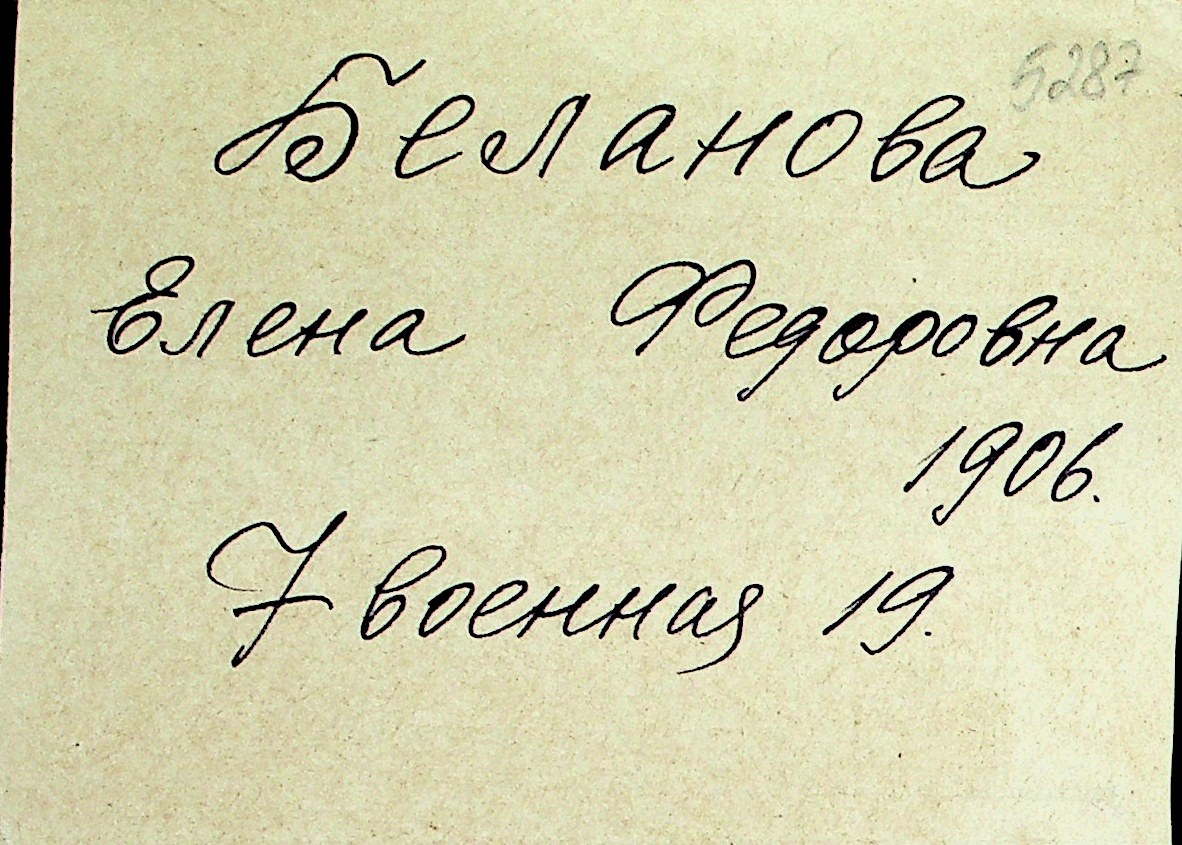 5287
Беланова
Елена Федоровна
1906.
7 военная 19.